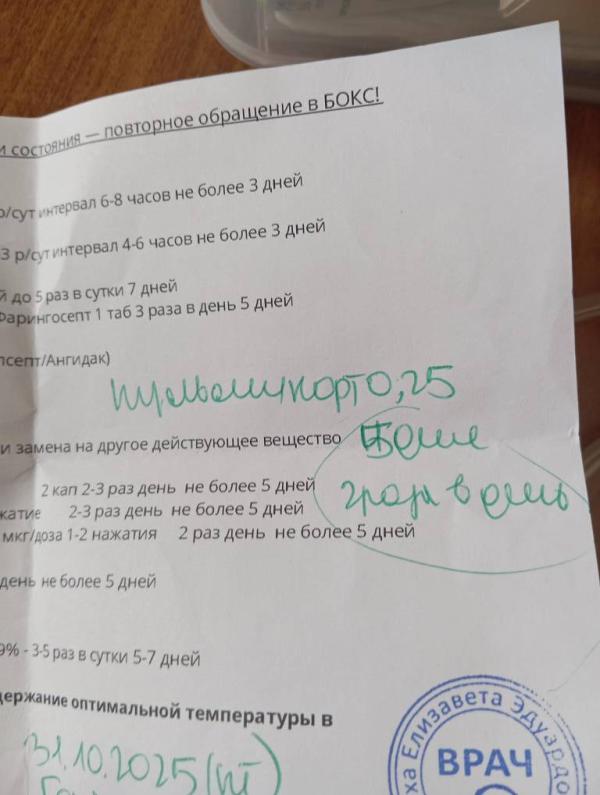 и состояния — повторное обращение в БОКС!
р/сут интервал 6-8 часов не более 3 дней
3 р/сут интервал 4-6 часов не более 3 дней
й до 5 раз в сутки 7 дней
Фарингосепт 1 таб 3 раза в день 5 дней
псепт/Ангидак)
0,25
и замена на другое действующее вещество
2 кап 2-3 раз день не более 5 дней
жатие 2-3 раз день не более 5 дней
в день
мкг/доза 1-2 нажатия 2 раз день не более 5 дней
день не более 5 дней
9% - 3-5 раз в сутки 5-7 дней
держание оптимальной температуры в
31.10.2025 (пт)
ха Елизавета Эдуардо
ВРАЧ